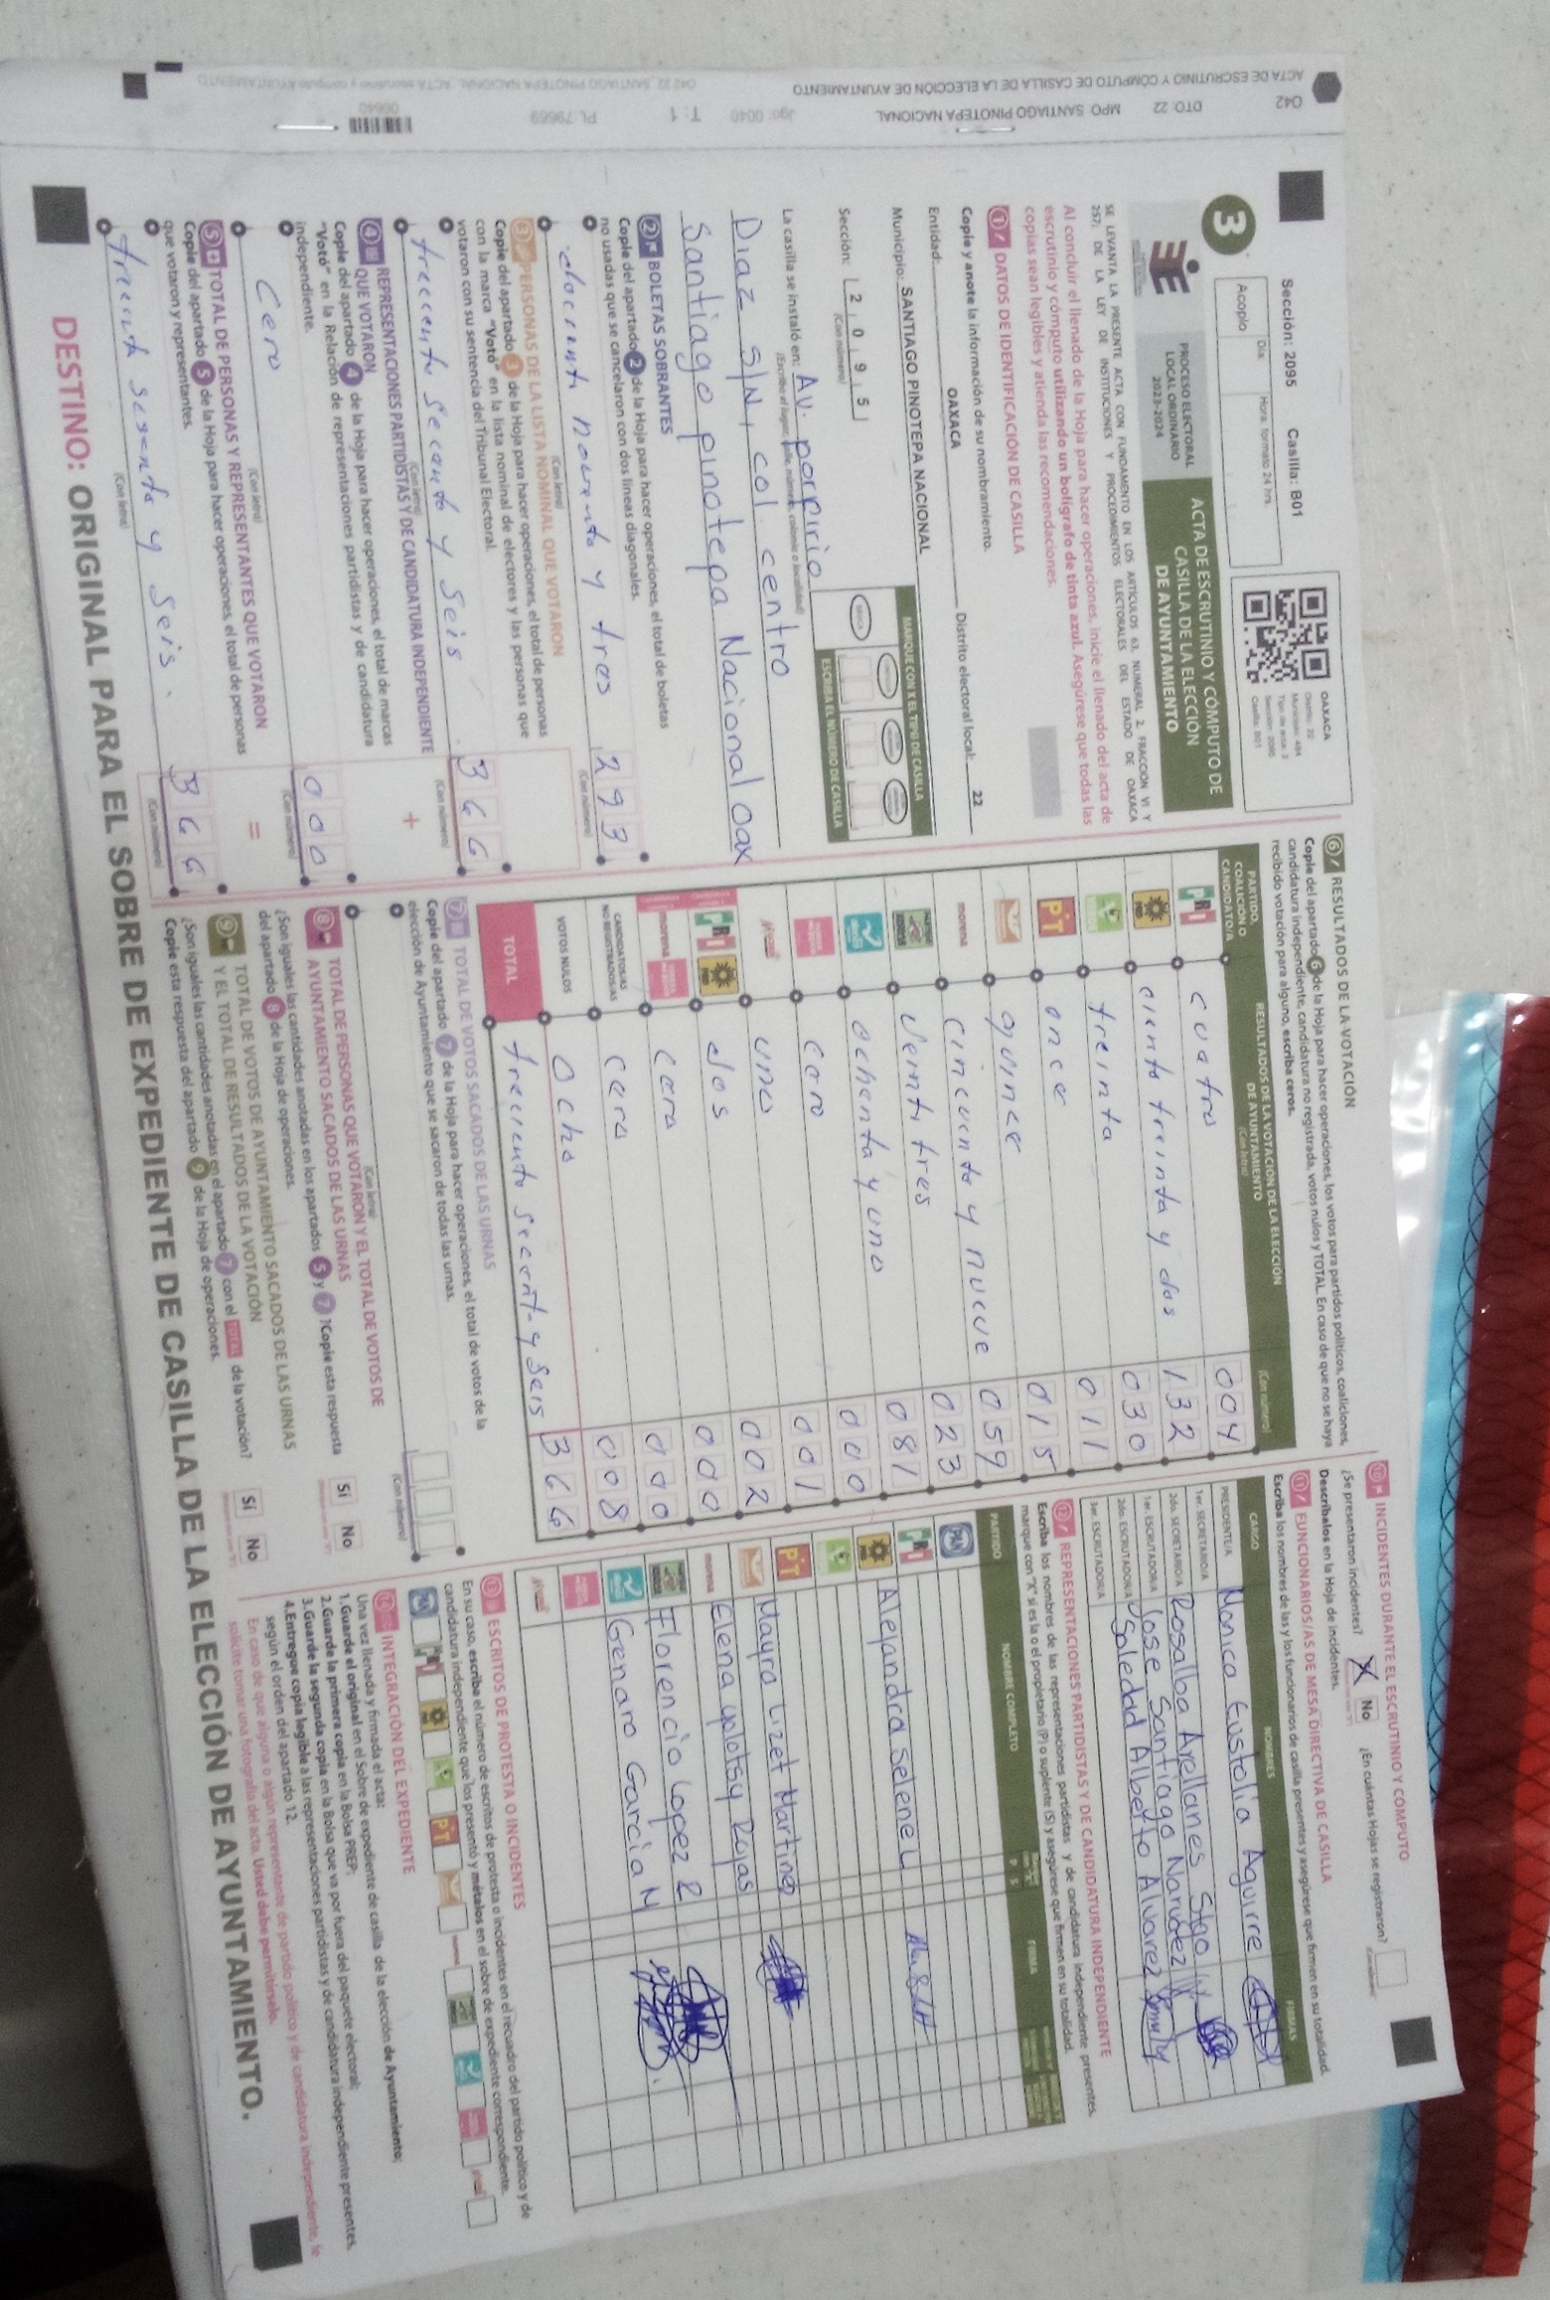 042
DTO: 22
MPO: SANTIAGO PINOTEPA NACIONAL
Jgo: 0040
T: 1
PL: 79669
ACTA DE ESCRUTINIO Y CÓMPUTO DE CASILLA DE LA ELECCIÓN DE AYUNTAMIENTO
Sección: 2095 Casilla: B01
Acopio
Día:
Hora: formato 24 hrs.
OAXACA
3
PROCESO ELECTORAL
LOCAL ORDINARIO
2023-2024
ACTA DE ESCRUTINIO Y CÓMPUTO DE
CASILLA DE LA ELECCIÓN
DE AYUNTAMIENTO
SE LEVANTA LA PRESENTE ACTA CON FUNDAMENTO EN LOS ARTÍCULOS 63, NUMERAL 2, FRACCIÓN VI Y
257, DE LA LEY DE INSTITUCIONES Y PROCEDIMIENTOS ELECTORALES DEL ESTADO DE OAXACA
Al concluir el llenado de la Hoja para hacer operaciones, inicie el llenado del acta de
escrutinio y cómputo utilizando un bolígrafo de tinta azul. Asegúrese que todas las
copias sean legibles y atienda las recomendaciones.
1 DATOS DE IDENTIFICACIÓN DE CASILLA
Copie y anote la información de su nombramiento.
Entidad: OAXACA Distrito electoral local: 22
Municipio: SANTIAGO PINOTEPA NACIONAL
MARQUE CON X EL TIPO DE CASILLA
Sección: 2095
(Con número)
ESCRIBA EL NÚMERO DE CASILLA
La casilla se instaló en: Av. porpirio
Diaz S/N, col centro
Santiago pinotepa Nacional Oax
2 BOLETAS SOBRANTES
Copie del apartado 2 de la Hoja para hacer operaciones, el total de boletas
no usadas que se cancelaron con dos líneas diagonales.
docienti noventa y tres 293
(Con letra) (Con número)
3 PERSONAS DE LA LISTA NOMINAL QUE VOTARON
Copie del apartado 3 de la Hoja para hacer operaciones, el total de personas
con la marca "Votó" en la lista nominal de electores y las personas que
votaron con su sentencia del Tribunal Electoral.
trecento secenta y seis 366
(Con letra) (Con número)
4 REPRESENTACIONES PARTIDISTAS Y DE CANDIDATURA INDEPENDIENTE
QUE VOTARON
Copie del apartado 4 de la Hoja para hacer operaciones, el total de marcas
"Votó" en la Relación de representaciones partidistas y de candidatura
independiente.
Cero 000
(Con letra) (Con número)
5 TOTAL DE PERSONAS Y REPRESENTANTES QUE VOTARON
Copie del apartado 5 de la Hoja para hacer operaciones, el total de personas
que votaron y representantes.
seis. 366
(Con letra) (Con número)
6 RESULTADOS DE LA VOTACIÓN
Copie del apartado 6 de la Hoja para hacer operaciones, los votos para partidos políticos, coaliciones,
candidatura independiente, candidatura no registrada, votos nulos y TOTAL. En caso de que no se haya
recibido votación para alguno, escriba ceros.
PARTIDO, COALICIÓN O CANDIDATO/A
RESULTADOS DE LA VOTACIÓN DE LA ELECCIÓN DE AYUNTAMIENTO
(Con letra) (Con número)
cuatro 004
PRI ciento treinta y dos 132
PRD treinta 030
once 011
PT quince 015
cincuenta y nueve 059
morena veinti tres 023
ochenta y uno 081
000
cero
uno 001
dos 002
PRI PRD
morena cero 000
CANDIDATOS/AS NO REGISTRADOS/AS cero 000
VOTOS NULOS Ocho 008
TOTAL y Seis 366
7 TOTAL DE VOTOS SACADOS DE LAS URNAS
Copie del apartado 7 de la Hoja para hacer operaciones, el total de votos de la
elección de Ayuntamiento que se sacaron de todas las urnas.
(Con letra) (Con número)
8 TOTAL DE PERSONAS QUE VOTARON Y EL TOTAL DE VOTOS DE
AYUNTAMIENTO SACADOS DE LAS URNAS
¿Son iguales las cantidades anotadas en los apartados 5 y 7? Copie esta respuesta
del apartado 8 de la Hoja de operaciones.
Sí No
9 TOTAL DE VOTOS DE AYUNTAMIENTO SACADOS DE LAS URNAS
Y EL TOTAL DE RESULTADOS DE LA VOTACIÓN
¿Son iguales las cantidades anotadas en el apartado 7 con el TOTAL de la votación?
Copie esta respuesta del apartado 9 de la Hoja de operaciones.
Sí No
10 INCIDENTES DURANTE EL ESCRUTINIO Y CÓMPUTO
¿Se presentaron incidentes? X No ¿En cuántas Hojas se registraron?
Descríbalos en la Hoja de incidentes.
11 FUNCIONARIOS/AS DE MESA DIRECTIVA DE CASILLA
Escriba los nombres de las y los funcionarios de casilla presentes y asegúrese que firmen en su totalidad.
CARGO NOMBRES FIRMAS
PRESIDENTE/A Monica Eustolia Aguirre
1er. SECRETARIO/A Rosalba Arellanes Stgo
2do. SECRETARIO/A Jose Santiago Narvaez
1er. ESCRUTADOR/A Soledad Alberto Alvarez
2do. ESCRUTADOR/A
3er. ESCRUTADOR/A
12 REPRESENTACIONES PARTIDISTAS Y DE CANDIDATURA INDEPENDIENTE
Escriba los nombres de las representaciones partidistas y de candidatura independiente presentes,
marque con "X" si es la o el propietario (P) o suplente (S) y asegúrese que firmen en su totalidad.
PARTIDO NOMBRE COMPLETO P S FIRMA
PAN
PRI Alejandra Selene L
PRD
PT
Mayra Lizet Martinez
morena Elena Rojas
Florencio Lopez R
Genaro Garcia M
13 ESCRITOS DE PROTESTA O INCIDENTES
En su caso, escriba el número de escritos de protesta o incidentes en el recuadro del partido político y de
candidatura independiente que los presentó y métalos en el sobre de expediente correspondiente.
14 INTEGRACIÓN DEL EXPEDIENTE
Una vez llenada y firmada el acta:
1. Guarde el original en el Sobre de expediente de casilla de la elección de Ayuntamiento;
2. Guarde la primera copia en la Bolsa PREP;
3. Guarde la segunda copia en la Bolsa que va por fuera del paquete electoral;
4. Entregue copia legible a las representaciones partidistas y de candidatura independiente presentes,
según el orden del apartado 12.
En caso de que alguna o algún representante de partido político y de candidatura independiente, le
solicite tomar una fotografía del acta. Usted debe permitírselo.
DESTINO: ORIGINAL PARA EL SOBRE DE EXPEDIENTE DE CASILLA DE LA ELECCIÓN DE AYUNTAMIENTO.